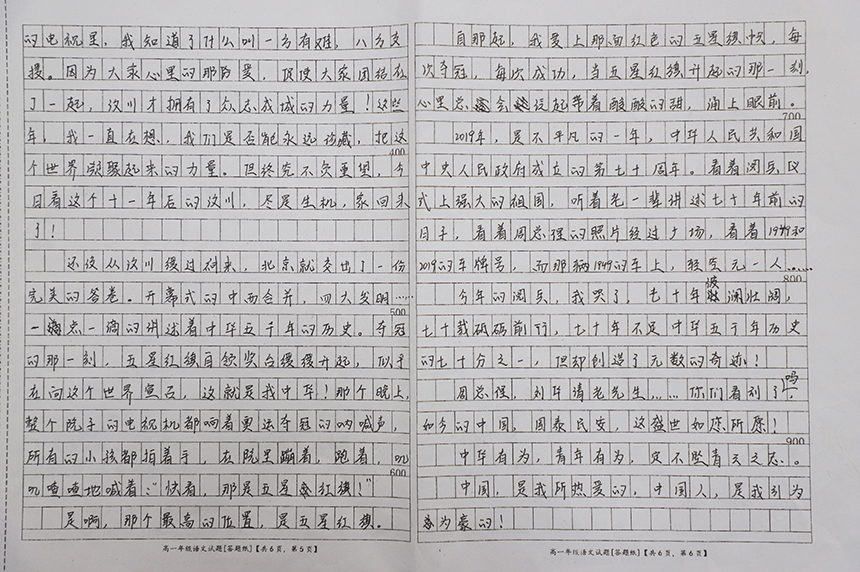 的电视里，我知道了什么叫一方有难，八方支
援。因为大家心里的那份爱，促使大家团结在
了一起，汶川才拥有了众志成城的力量！这些
年，我一直在想，我们是否能永远珍藏，把这
400
个世界凝聚起来的力量。但终究不负重望，今
日看这个十一年后的汶川，尽是生机，家回来
了！
还没从汶川缓过神来，北京就交出了一份
完美的答卷。开幕式的中西合并，四大发明……
500
一点一滴的讲述着中华五千年的历史。夺冠
的那一刻，五星红旗自领奖台缓缓升起，似乎
在向这个世界宣告，这就是我中华！那个晚上，
整个院子的电视机都响着奥运夺冠的呐喊声，
所有的小孩都拍着手，在院里蹦着，跑着，叽
600
叽喳喳地喊着：“快看，那是五星红旗！”
是啊，那个最高的位置，是五星红旗。
高一年级语文试题[答题纸]【共6页，第5页】
自那起，我爱上那面红色的五星旗帜，每
次夺冠，每次成功，当五星红旗升起的那一刻，
心里总会泛起带着酸酸的甜，涌上眼前。
700
2019年，是不平凡的一年，中华人民共和国
中央人民政府成立的第七十周年。看着阅兵仪
式上强大的祖国，听着老一辈讲述七十年前的
日子，看着周总理的照片经过广场，看着1949和
2019的车牌号，而那辆1949的车上，驾空无一人……
800
今年的阅兵，我哭了，七十年波壮澜壮阔，
七十载砥砺前行，七十年不足中华五千年历史
的七十分之一，但却创造了无数的奇迹！
周总理，刘华清老先生……你们看到了吗，
如今的中国，国泰民安，这盛世如您所愿！
900
中华有为，青年有为，定不坠青云之志。
中国，是我所热爱的，中国人，是我引为
为豪的！
高一年级语文试题[答题纸]【共6页，第6页】